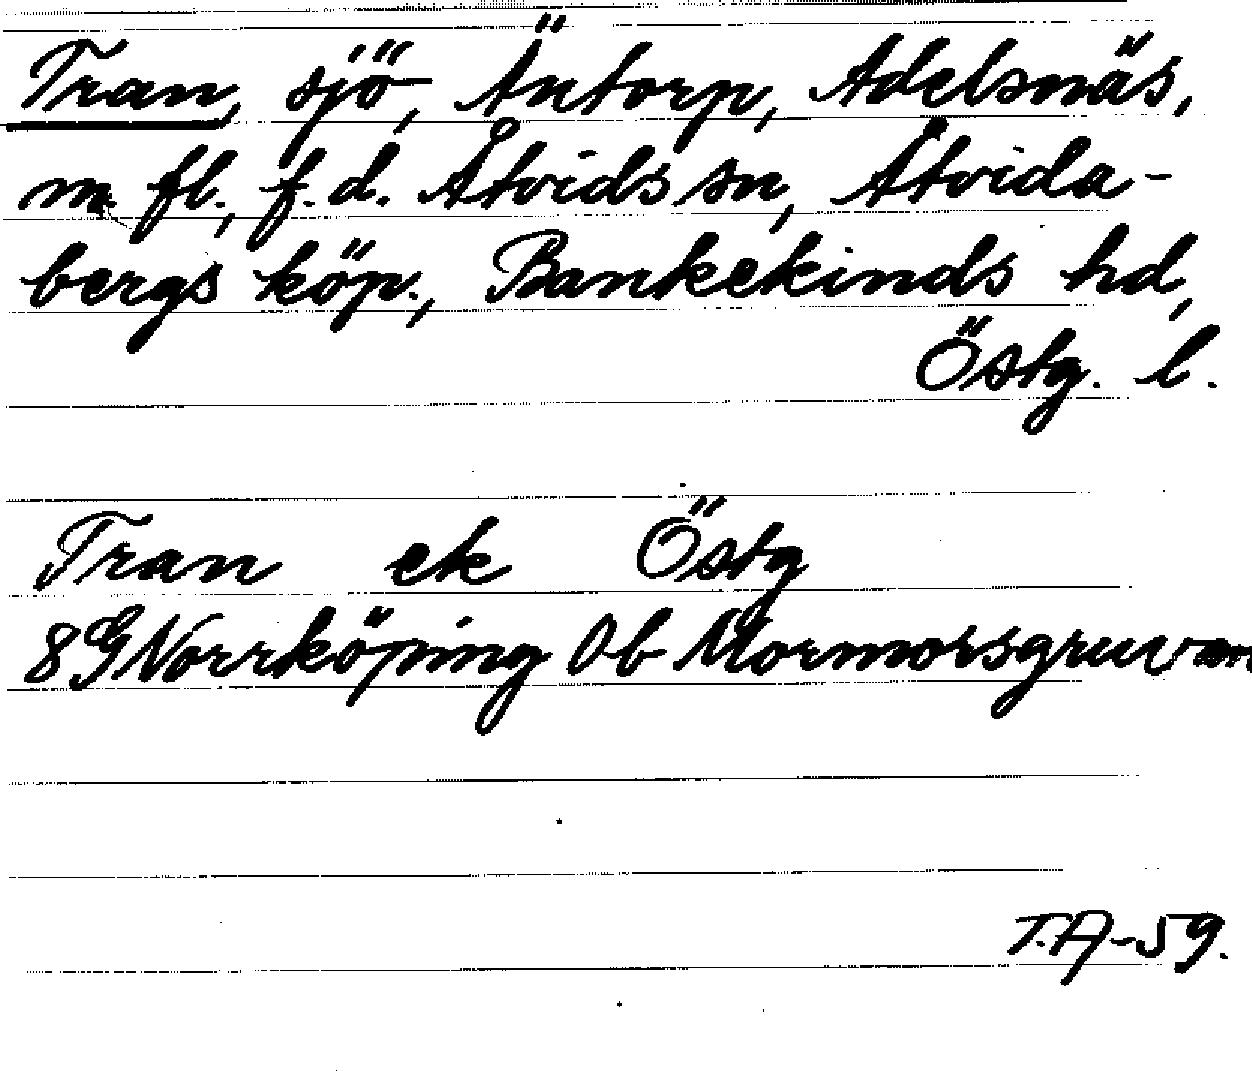 Tran, sjö, Äntorp, Adelsnäs,
m. fl., f. d. Åtvids sn, Åtvida-
bergs köp., Bankekinds hd,
Östg. l.
Tran ek Östg
8G Norrköping Ob Mormorsgruvan
T.A-59.